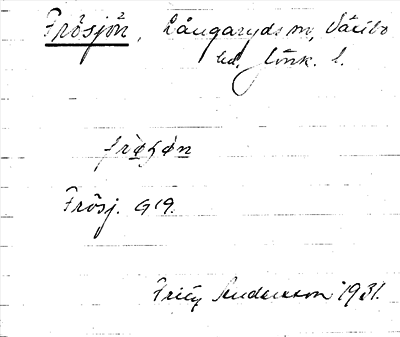 Frösjön, Långaryds sn, Västbo
hd. Jönk. l.
Frösj. G19.
Fritz Anderson 1931.